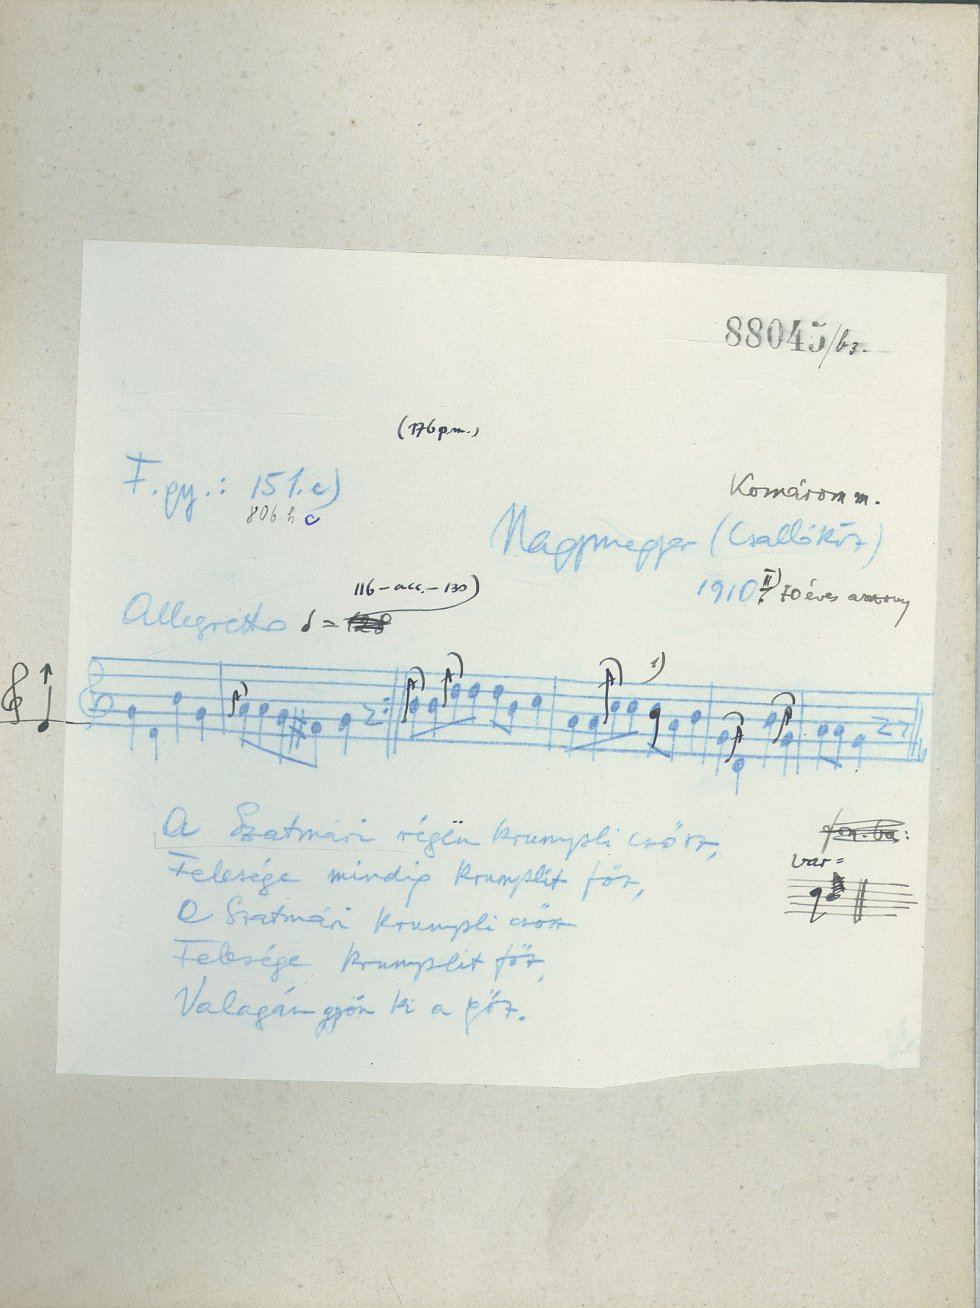 88045/b3.
(176 pm.)
F. gy.: 151. c)
806 h c
Komárom m.
Nagymegyer (Csallóköz)
1910 II) 70 éves asszony
116 – acc. – 130)
Allegretto ♩ = 128
1)
A Szatmári régön krumpli csősz,
Felesége mindig krumplit főz,
A Szatmári krumpli csősz
Felesége krumplit főz,
Valagán gyön ki a gőz.
var =